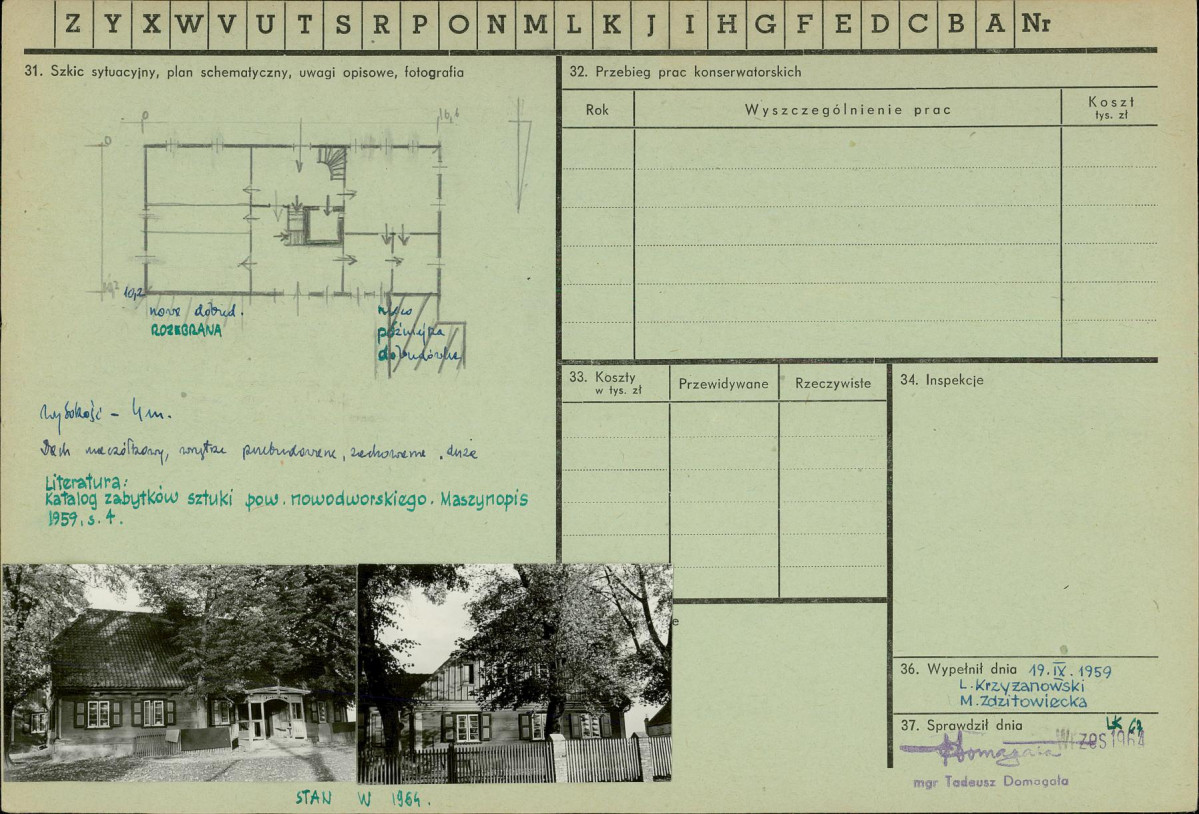 Z Y X W V U T S R P O N M L K J I H G F E D C B A Nr
31. Szkic sytuacyjny, plan schematyczny, uwagi opisowe, fotografia
0 16,6
0
10,2
10,2
nowe dobud.
ROZEBRANA
późniejsza
dobudówka
Wysokość – 4 m.
Dach naczółkowy, wnętrze przebudowane, zachowane . duże
Literatura:
Katalog zabytków sztuki pow. nowodworskiego. Maszynopis
1959, s. 4.
STAN W 1964.
32. Przebieg prac konserwatorskich
Rok Wyszczególnienie prac Koszt
tys. zł
33. Koszty
w tys. zł
Przewidywane Rzeczywiste
34. Inspekcje
36. Wypełnił dnia 19.IX.1959
L. Krzyżanowski
M. Zdzitowiecka
37. Sprawdził dnia
WRZES 1964
mgr Tadeusz Domagała